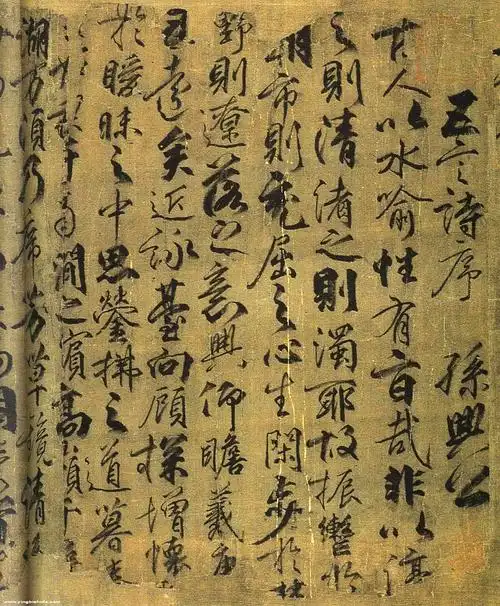 五言詩序 孫興公
古人以水喻性有旨哉非以渟
之則清渚之則濁耶故振轡於
朝市則充屈之心生閑步於林
野則遼落之意興仰瞻羲唐
遠矣近詠臺向顧探增懷
於曖昧之中思瑩拂之道暮春
南澗之濱高嶺千尋
湖万頃乃席芳草鏡清